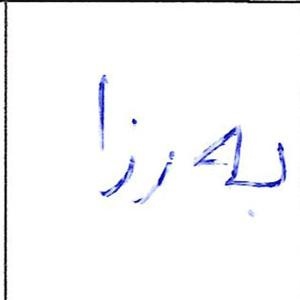 بەرزا